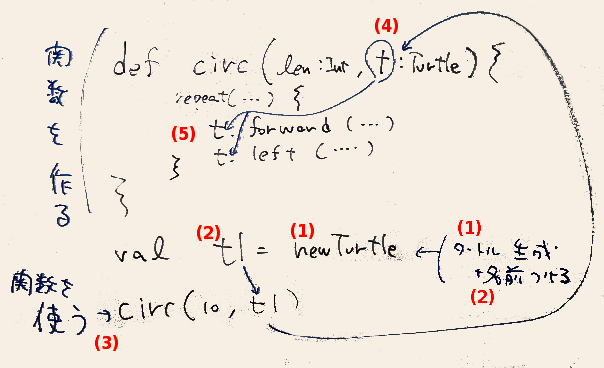 (4)
関数を作る
def circ (len:Int, t:Turtle) {
repeat(...) {
(5) t. forward (...)
t. left (....)
}
}
val (2) t1 = (1) newTurtle ← (1) タートル生成・
+名前つける
(2)
関数を
使う→ circ(10, t1)
(3)